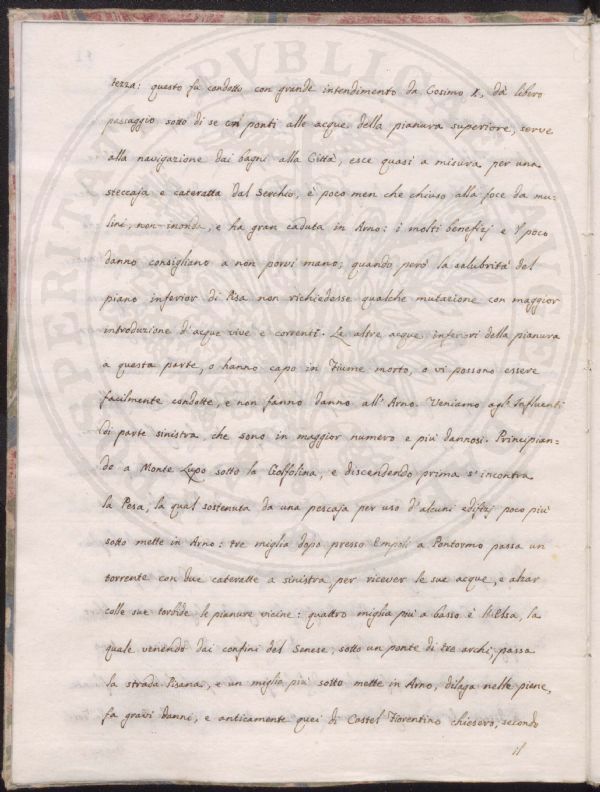 tezza: questo fu condotto con grande intendimento da Cosimo I, dà libero
passaggio sotto di se con ponti alle acque della pianura superiore, serve
alla navigazione dai bagni alla Città, esce quasi a misura per una
steccaja e cateratta dal Serchio, è poco men che chiuso alla foce da mu-
lini, non inonda, e ha gran caduta in Arno: i molti benefizj e 'l poco
danno consigliano a non porvi mano; quando però la salubrità del
piano inferior di Pisa non richiedesse qualche mutazione con maggior
introduzione d'acque vive e correnti. Le altre acque inferiori della pianura
a questa parte, o hanno capo in Fiume morto, o vi possono essere
facilmente condotte, e non fanno danno all' Arno. Veniamo agl' Influenti
di parte sinistra, che sono in maggior numero e più dannosi. Principian-
do a Monte Lupo sotto la Golfolina, e discendendo prima s' incontra
la Pesa, la qual sostenuta da una pescaja per uso d'alcuni edifizj poco più
sotto mette in Arno: tre miglia dopo presso Empoli a Pontormo passa un
torrente con due cateratte a sinistra per ricever le sue acque, e alzar
colle sue torbide le pianure vicine: quattro miglia più a basso è l'Elsa, la
quale venendo dai confini del Senese, sotto un ponte di tre archi, passa
la strada Pisana, e un miglio più sotto mette in Arno, dilaga nelle piene,
fa gravi danni, e anticamente quei di Castel Fiorentino chiesero, secondo
il